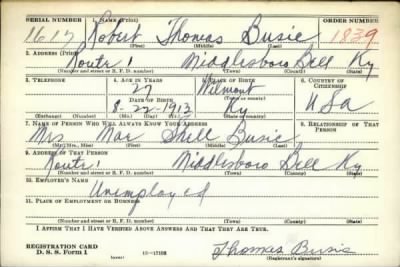 SERIAL NUMBER 1. NAME (Print) ORDER NUMBER
1617 Robert Thomas Busic 1839
(First) (Middle) (Last)
2. ADDRESS (Print)
Route 1 Middlesboro Bell Ky
(Number and street or R. F. D. number) (Town) (County) (State)
3. TELEPHONE 4. AGE IN YEARS 5. PLACE OF BIRTH 6. COUNTRY OF CITIZENSHIP
27 Wilmont
DATE OF BIRTH (Town or county)
8-22-1913 Ky USA
(Exchange) (Number) (Mo.) (Day) (Yr.) (State or country)
7. NAME OF PERSON WHO WILL ALWAYS KNOW YOUR ADDRESS 8. RELATIONSHIP OF THAT PERSON
Mrs Mae Busic
(Mr., Mrs., Miss) (First) (Middle) (Last)
9. ADDRESS OF THAT PERSON
Route 1 Middlesboro Bell Ky
(Number and street or R. F. D. number) (Town) (County) (State)
10. EMPLOYER'S NAME
Unemployed
11. PLACE OF EMPLOYMENT OR BUSINESS
(Number and street or R. F. D. number) (Town) (County) (State)
I AFFIRM THAT I HAVE VERIFIED ABOVE ANSWERS AND THAT THEY ARE TRUE.
REGISTRATION CARD Thomas Busic
D. S. S. Form 1 (Registrant's signature)